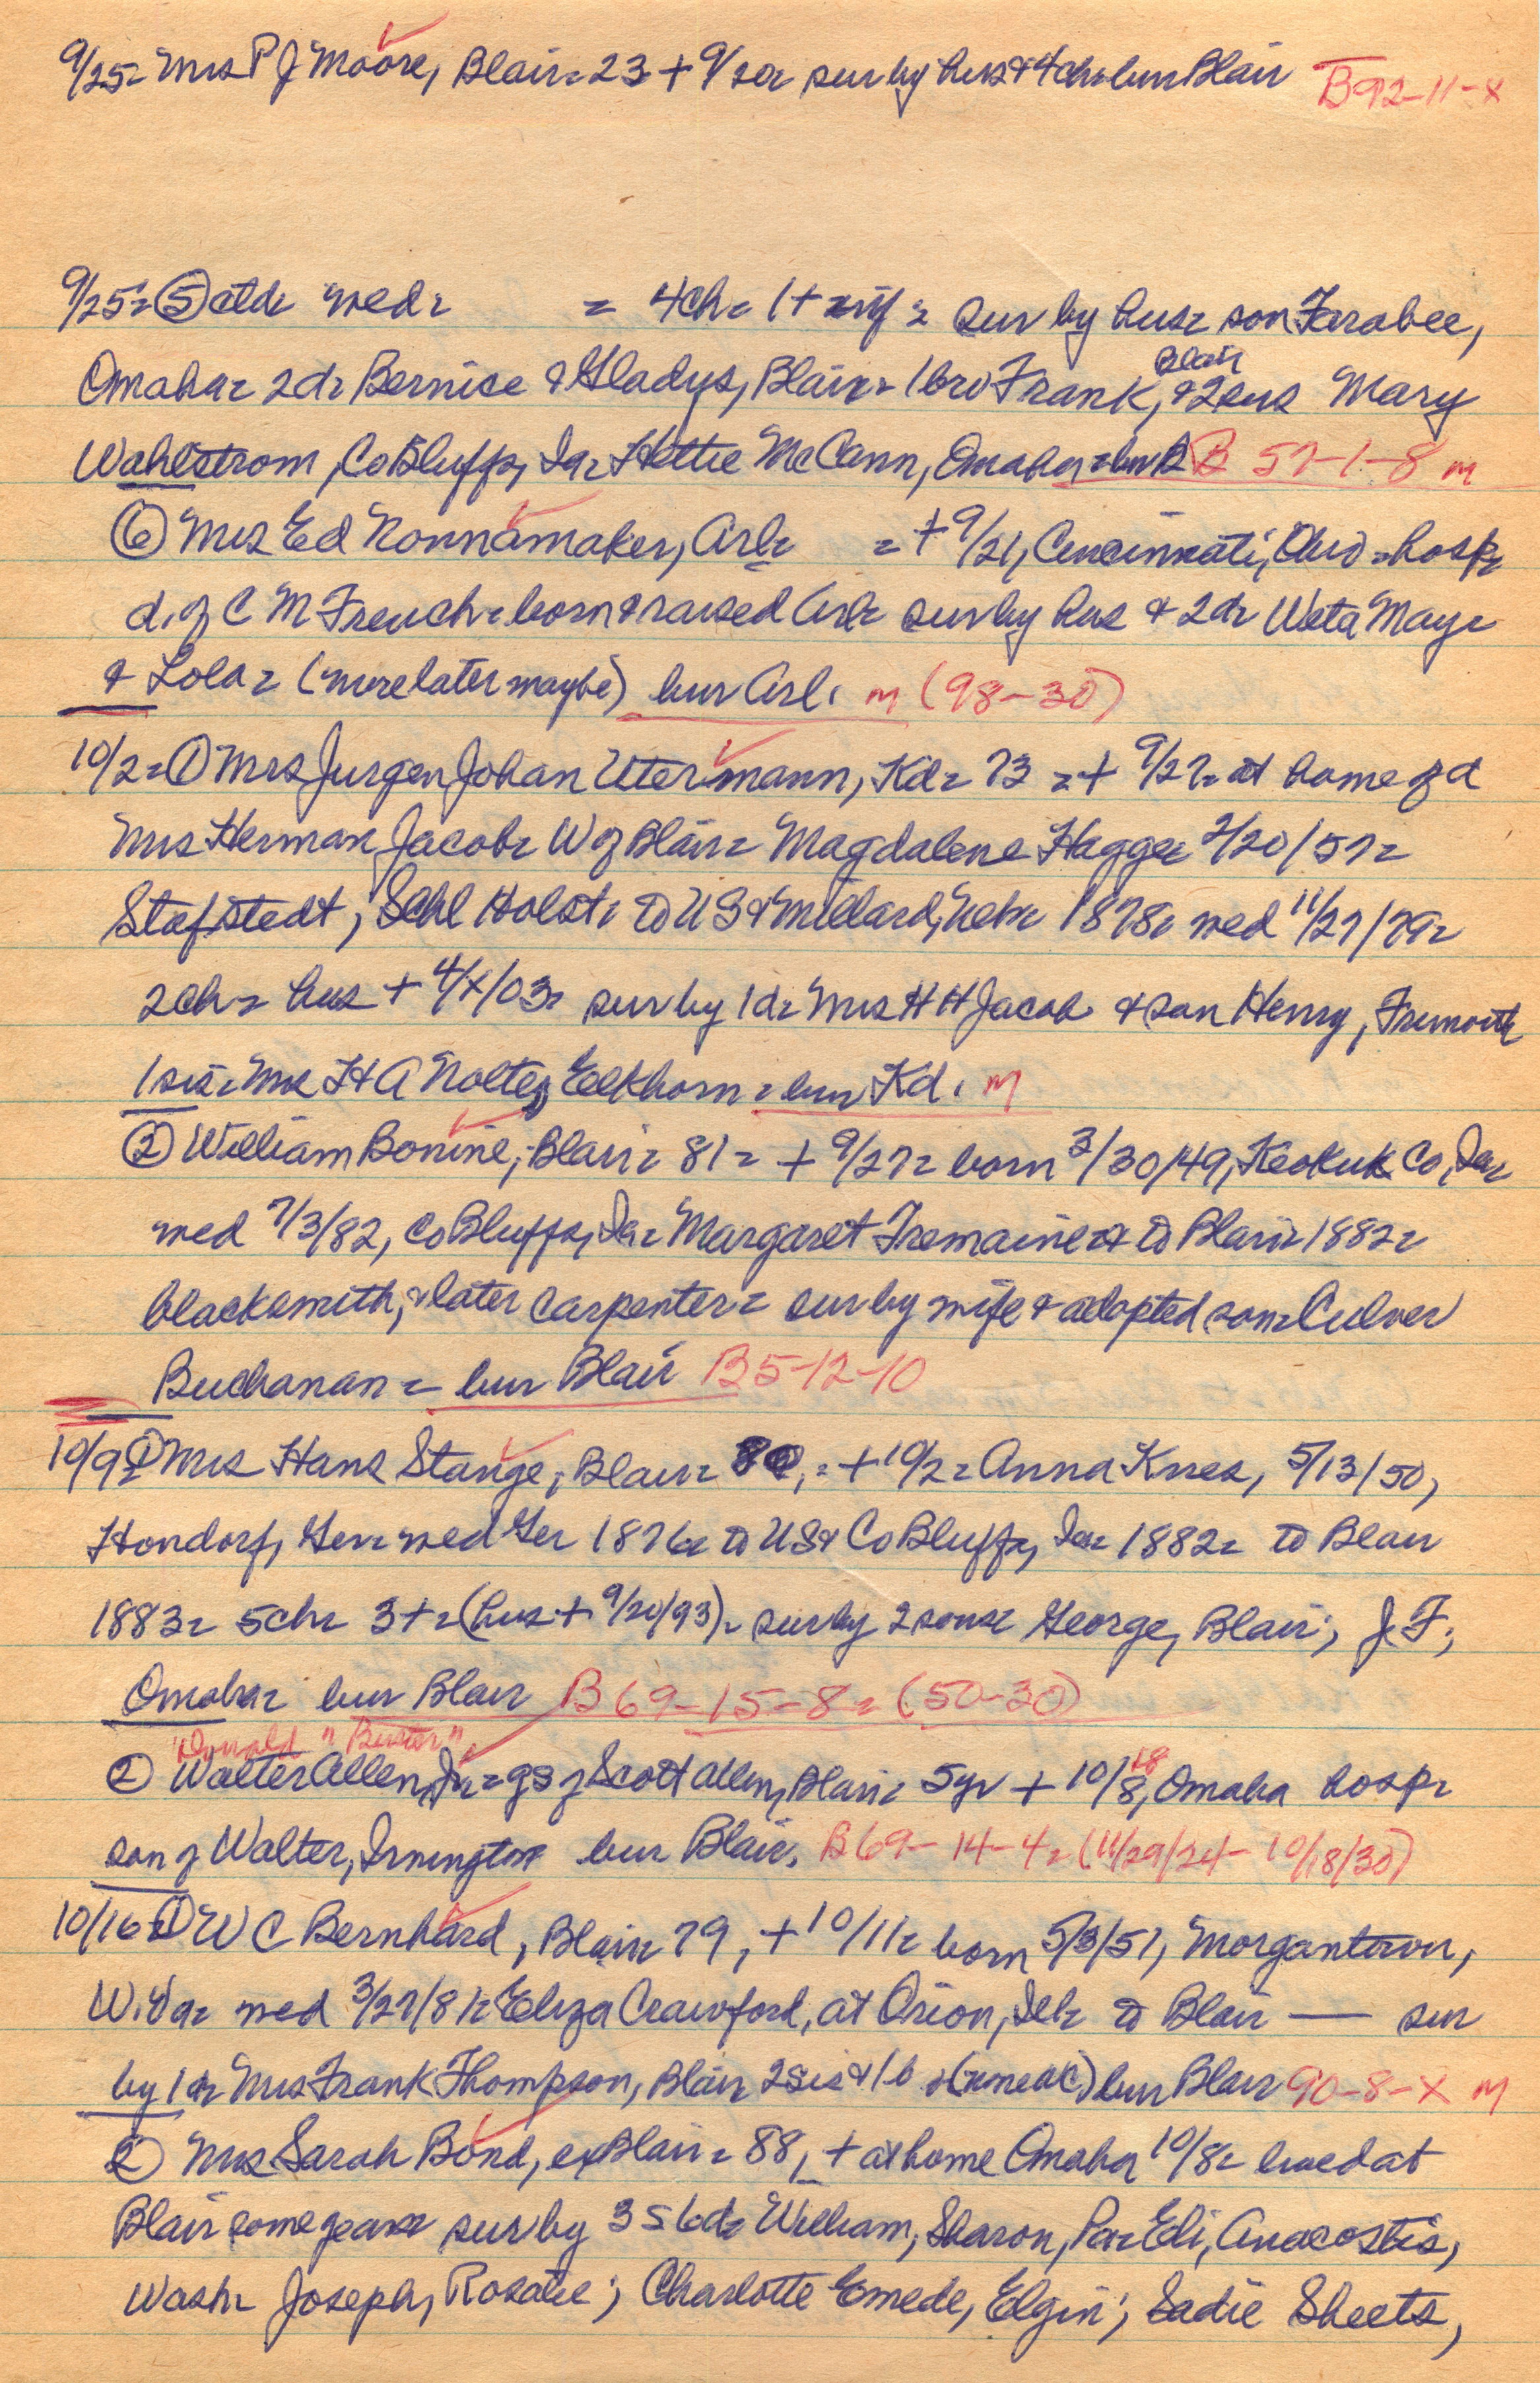 9/25= Mrs P J Moore, Blair= 23 + 9/ sur by hus & 4ch= bur Blair B92-11-X
9/25= ⑤ctd= wed= = 4ch= 1+ inf= sur by hus= son Farabee,
Omaha= 2d= Bernice & Gladys, Blair= 1bro Frank, Blair & 2sis Mary
Wahlstrom, CoBluffs, Ia= Hettie McCann, Omaha= bur B B 57-1-8 m
⑥ Mrs Ed Nonnamaker, Arl= = + 9/21, Cincinnati, Ohio= hosp=
d. of C M French= born & raised Arl= sur by hus & 2d= Weta May=
& Lola= (more later maybe) bur Arl. m (98-30)
10/2= ① Mrs Jurgen Johan Utermann, Kd= 73 = + 9/27= at home of d
Mrs Herman Jacob= W of Blair= Magdalene Hagge= 2/20/57=
Stafstedt, Schl Holst= to US & Millard, Neb= 1878= wed 11/27/79=
2ch= hus + 4/X/03= sur by 1d= Mrs H H Jacob & son Henry, Fremont
1sis= Mrs H A Nolte, Elkhorn= bur Kd. m
② William Bonine, Blair= 81= + 9/27= born 3/30/49, Keokuk Co, Ia=
wed 7/3/82, CoBluffs, Ia= Margaret Tremaine & to Blair= 1882=
blacksmith, & later carpenter= sur by wife & adopted son= Culver
Buchanan= bur Blair B5-12-10
10/9= ① Mrs Hans Stange, Blair= 80, = + 10/2= Anna Knes, 5/13/50,
Hondorf, Ger= wed Ger 1876= to US & CoBluffs, Ia= 1882= to Blair
1883= 5ch= 3+= (hus + 9/20/93)= sur by 2 sons= George, Blair; J. F.,
Omaha= bur Blair B69-15-8= (50-30)
"Donald" "Buster"
② Walter Allen, Jr= gs of Scott Allen, Blair= 5yr + 10/8, 18 Omaha hosp=
son of Walter, Irvington bur Blair. B69-14-4= (11/29/24- 10/18/30)
10/16= ① W C Bernhard, Blair= 79, + 10/11= born 5/3/51, Morgantown,
W. Va= wed 3/27/81= Eliza Crawford, at Orion, Ill= to Blair — sur
by 1d= Mrs Frank Thompson, Blair= 2sis & 1b bur Blair 90-8-X m
② Mrs Sarah Bond, exBlair= 88, + at home Omaha 10/8= lived at
Blair some years sur by 3s 6d= William, Sharon, Pa= Eli, Anacostis,
Wash= Joseph, Rosalie; Charlotte Emede, Elgin; Sadie Sheets,